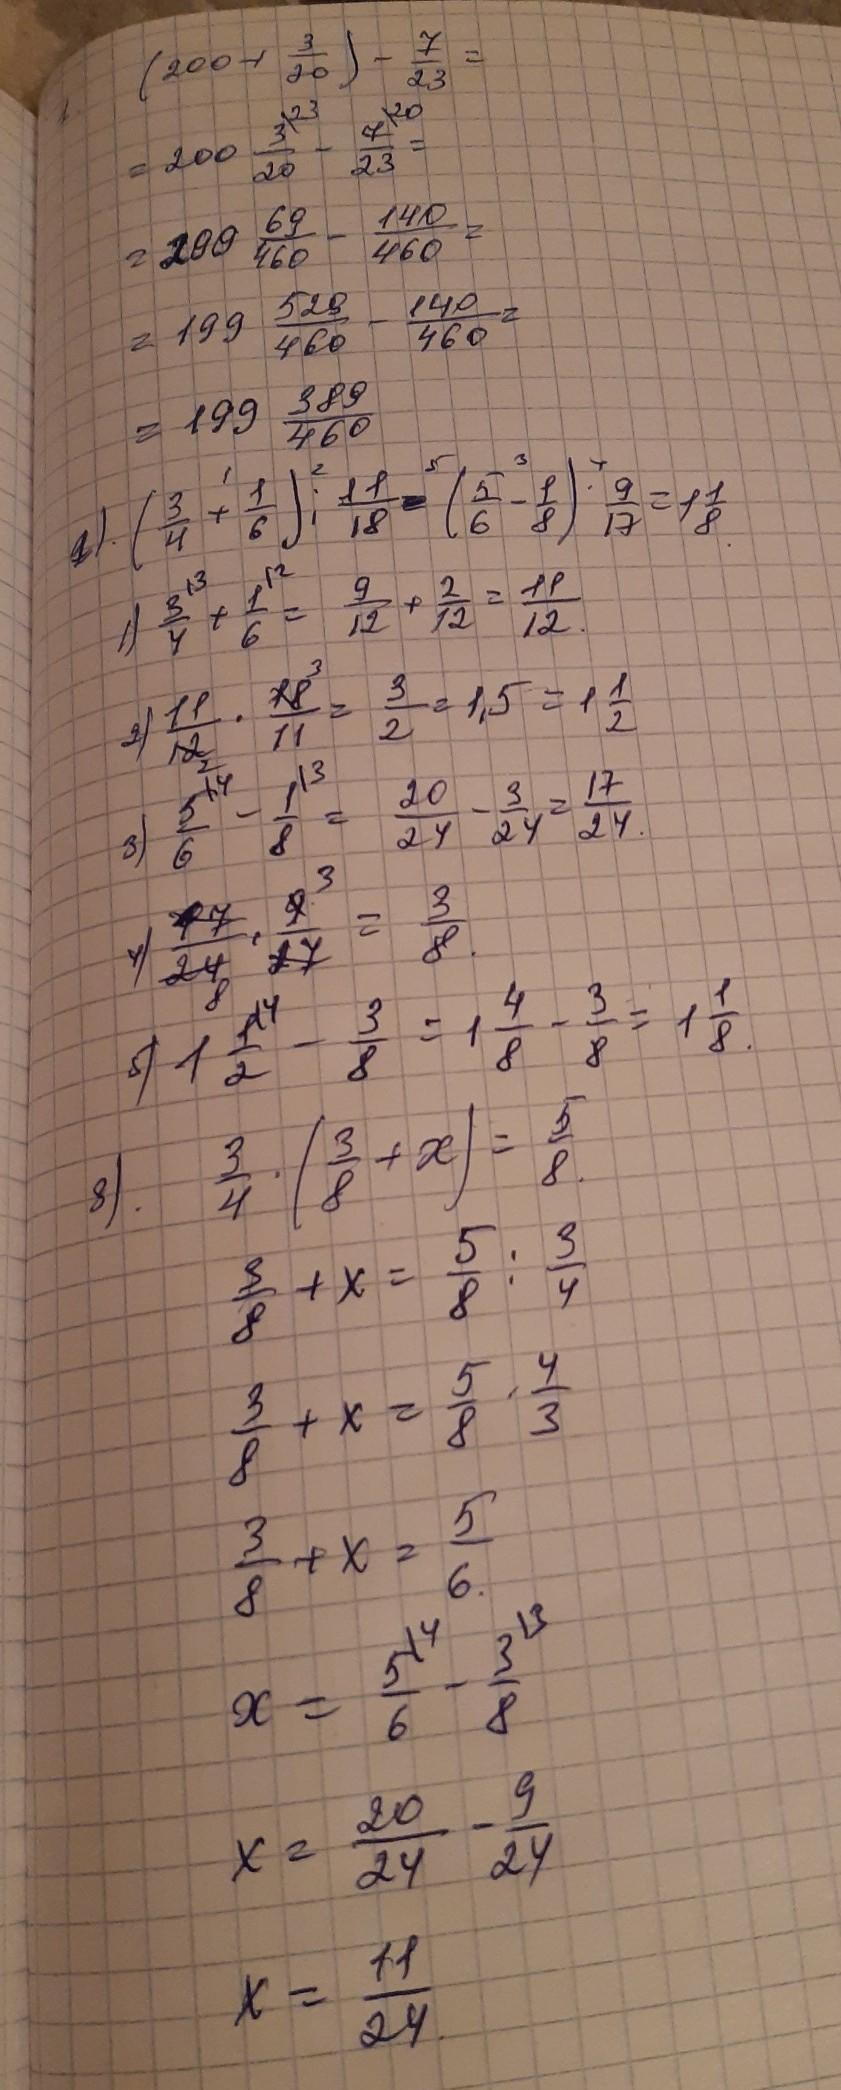 (200 + 3/20) - 7/23 =
= 200 3/20 \23 - 7/23 \20 =
= 299 69/460 - 140/460 =
= 199 529/460 - 140/460 =
= 199 389/460
2). (3/4 +¹ 1/6) :² 11/18 -⁵ (5/6 -³ 1/8) ·⁴ 9/17 = 1 1/8.
1) 3/4 \3 + 1/6 \2 = 9/12 + 2/12 = 11/12.
2) 11/12 2 · 18/11 3 = 3/2 = 1,5 = 1 1/2
3) 5/6 \4 - 1/8 \3 = 20/24 - 3/24 = 17/24.
4) 17/24 8 · 9/17 3 = 3/8.
5) 1 1/2 \4 - 3/8 = 1 4/8 - 3/8 = 1 1/8.
8). 3/4 · (3/8 + x) = 5/8.
3/8 + x = 5/8 : 3/4
3/8 + x = 5/8 · 4/3
3/8 + x = 5/6.
x = 5/6 \4 - 3/8 \3
x = 20/24 - 9/24
x = 11/24.